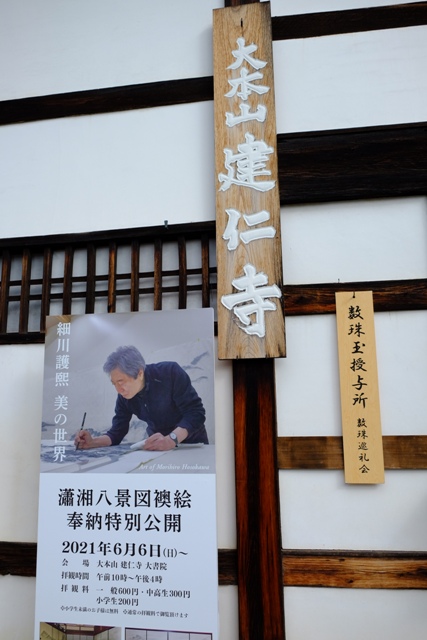 大本山 建仁寺
数珠玉授与所
数珠巡礼会
細川護熙 美の世界
Art of Morihiro Hosokawa
瀟湘八景図襖絵
奉納特別公開
2021年6月6日(日)～
会場 大本山 建仁寺 大書院
拝観時間 午前10時～午後4時
拝観料 一般600円・中高生300円
小学生200円
※小学生未満のお子様は無料 ※通常の拝観料で御覧頂けます